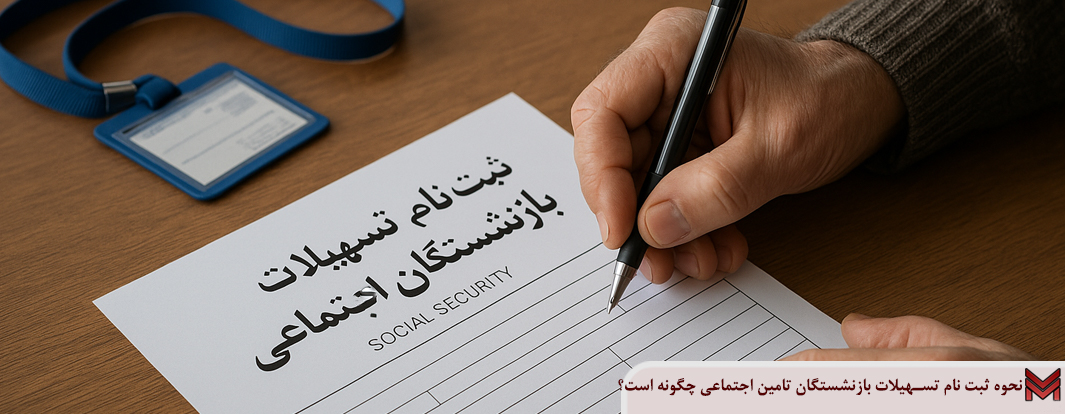 ثبت‌نام تسهیلات
بازنشستگان اجتماعی
SOCIAL SECURITY
نحوه ثبت نام تســهیلات بازنشستگان تامین اجتماعی چگونه است؟